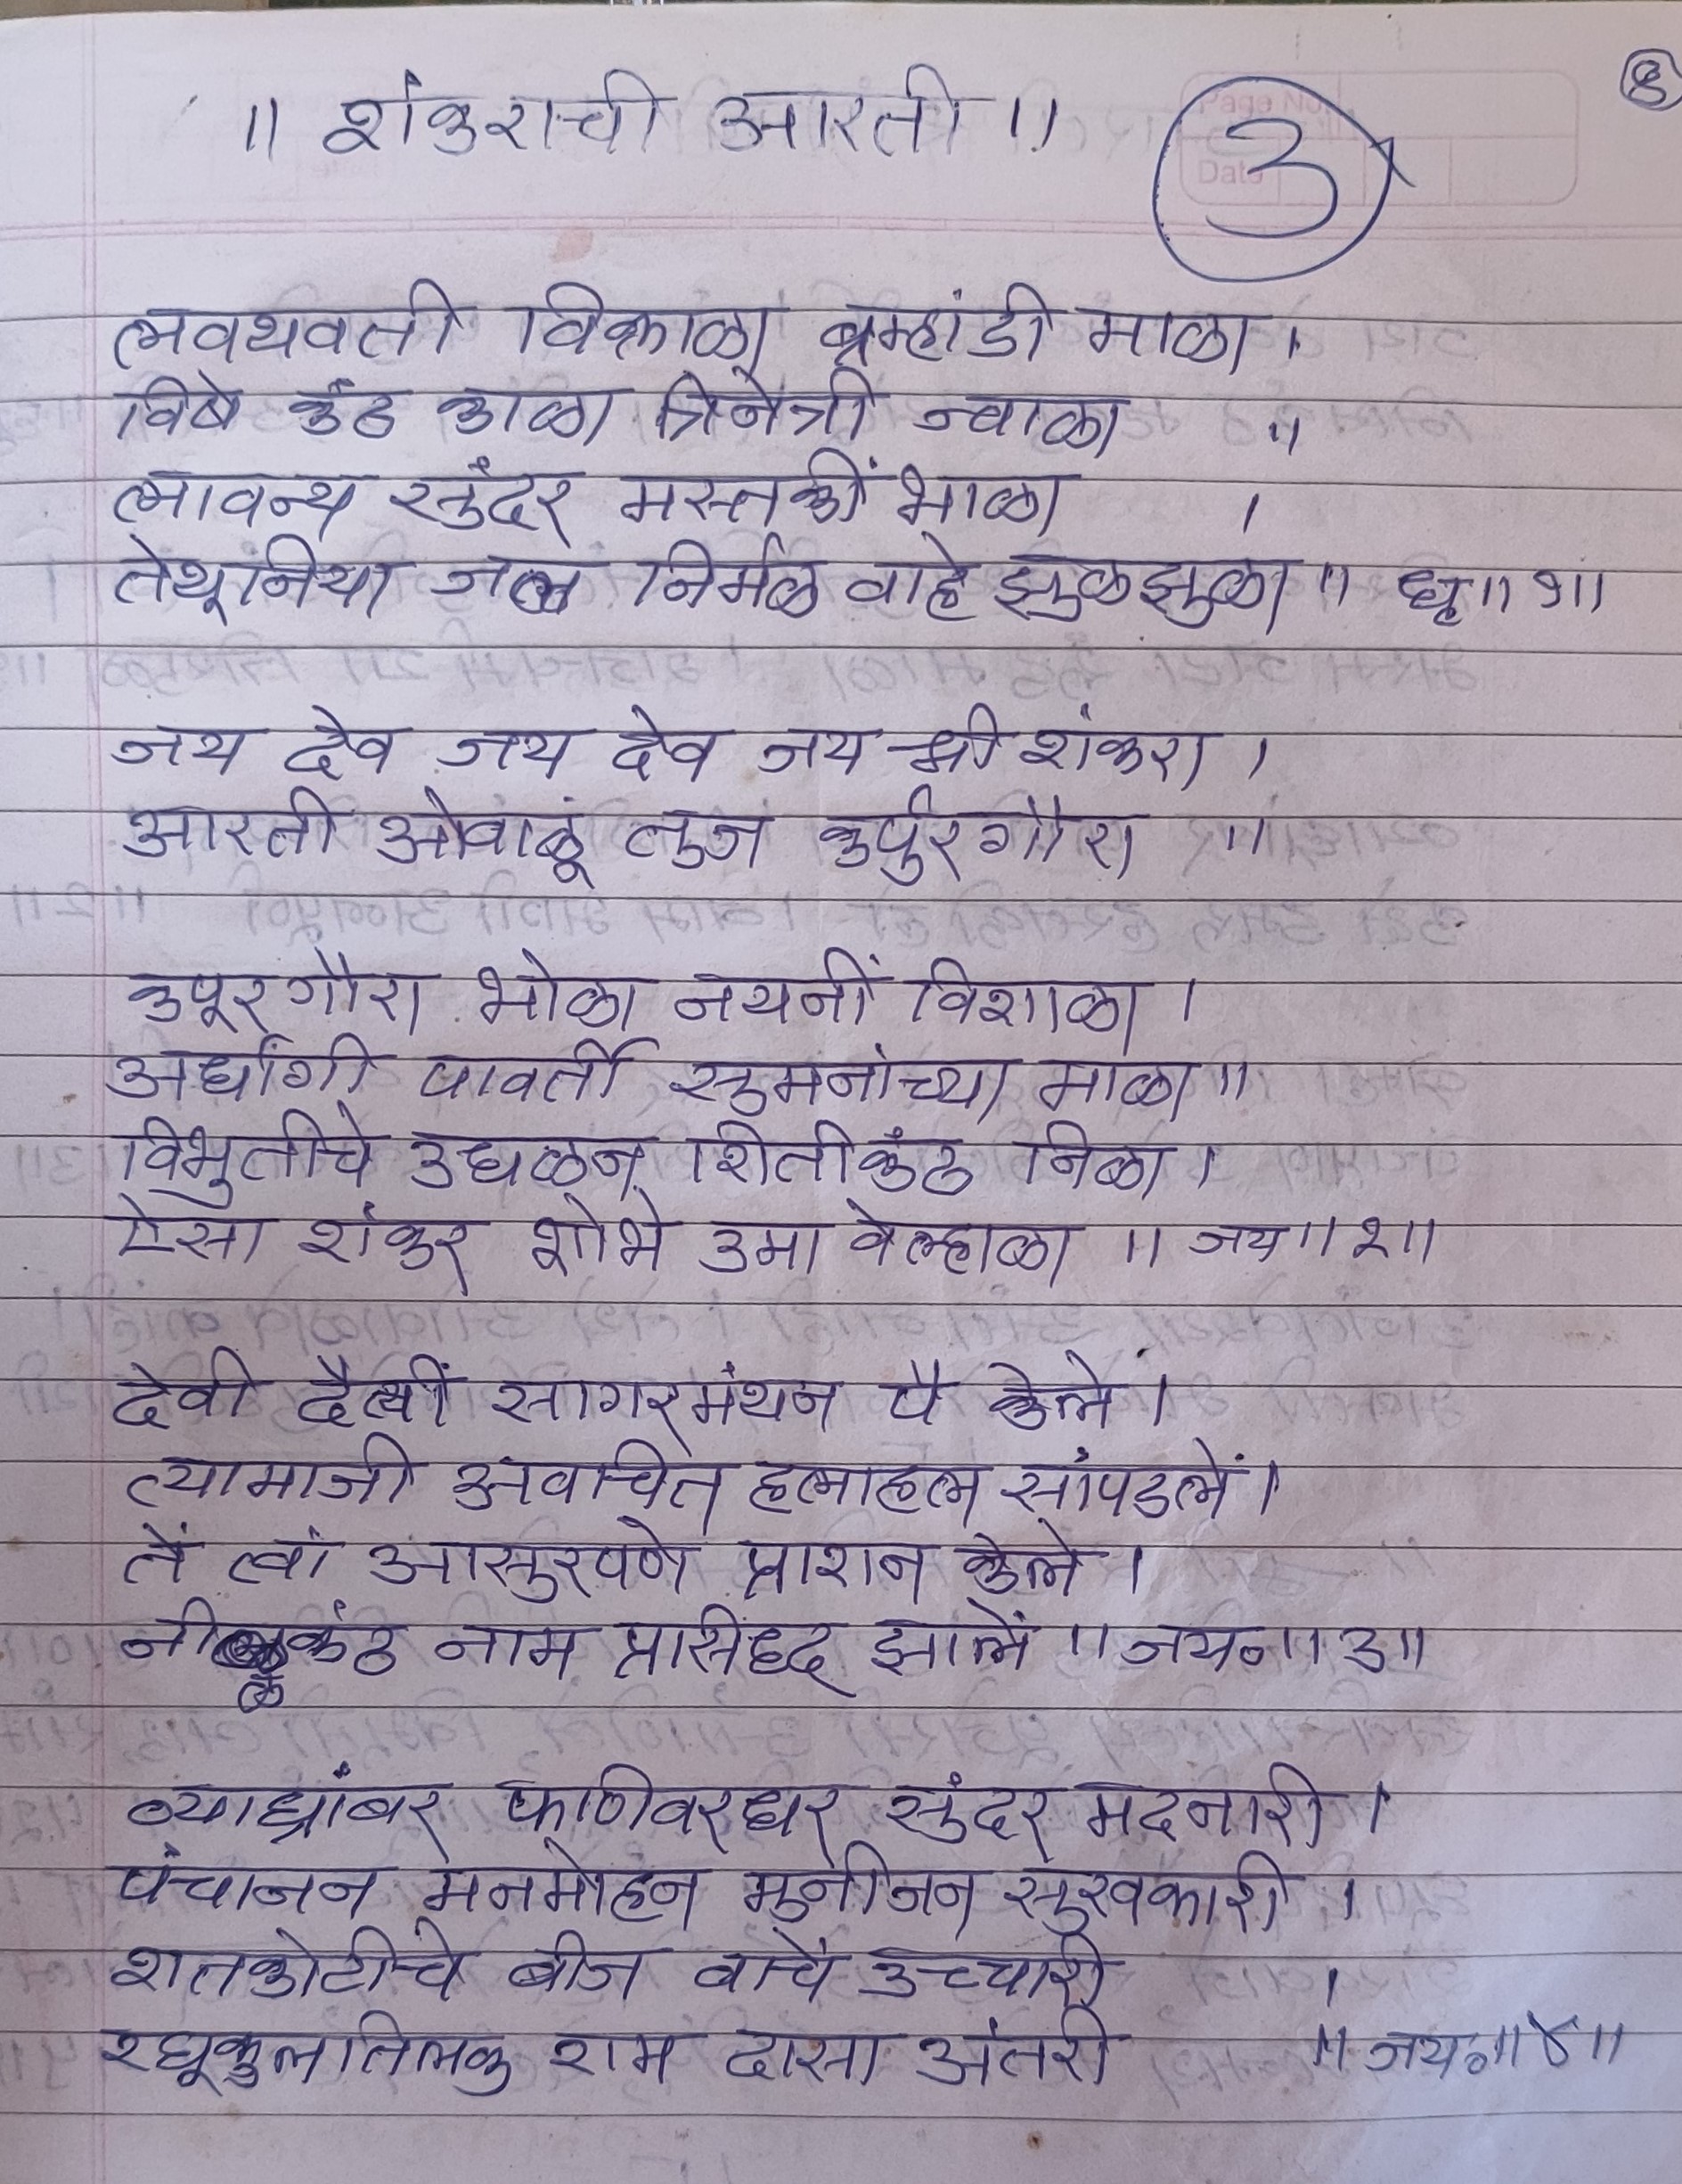 ॥ शंकराची आरती ॥ ३
लवथवती विक्राळा ब्रम्हांडी माळा ।
विषे कंठ काळा त्रिनेत्री ज्वाळा ॥
लावन्य सुंदर मस्तकीं भाळा ।
तेथूनिया जल निर्मळ वाहे झुळझुळा ॥ धृ॥ १॥
जय देव जय देव जय श्री शंकरा ।
आरती ओवाळूं तुज कर्पुरगौरा ॥
कपूरगौरा भोळा नयनीं विशाळा ।
अर्धांगी पावर्ती सुमनांच्या माळा ॥
विभुतीचे उधळन शितीकंठ निळा ।
ऐसा शंकर शोभे उमा वेल्हाळा ॥ जय॥ २॥
देवी दैत्यीं सागरमंथन पै केले ।
त्यामाजी अवचित हलाहल सांपडलें ।
तें त्वां आसुरपणे प्राशन केले ।
नीळकंठ नाम प्रसिध्द झालें ॥ जय०॥ ३॥
व्याघ्रांबर फणिवरधर सुंदर मदनारी ।
पंचानन मनमोहन मुनीजन सुखकारी ।
शतकोटीचे बीज वाचे उच्चारी ।
रघूकुलतिलक राम दासा अंतरी ॥ जय०॥ ४॥